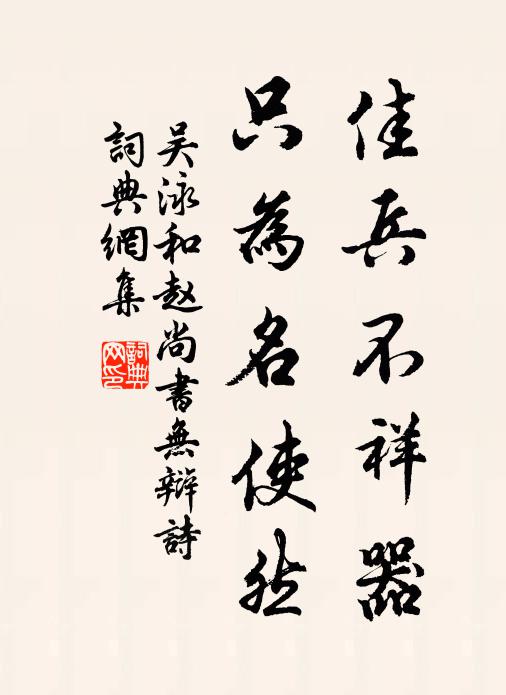 佳兵不祥器
只為名使然
吳泳和赵尚書無辯詩
詞典網集
詞典网印